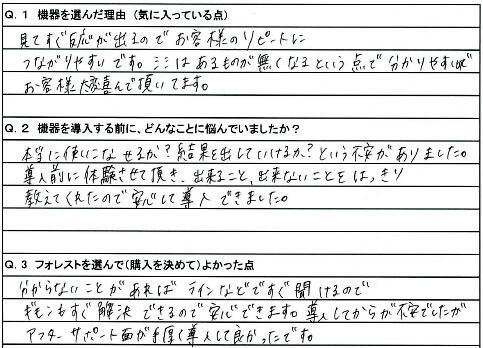 Q. 1 機器を選んだ理由（気に入っている点）
見てすぐ反応が出るのでお客様のリピートに
つながりやすいです。シミはあるものが無くなるという点で分かりやすいので
お客様大変喜んで頂いてます。
Q. 2 機器を導入する前に、どんなことに悩んでいましたか？
本当に使いこなせるか？結果を出していけるか？という不安がありました。
導入前に体験させて頂き、出来ること、出来ないことをはっきり
教えてくれたので安心して導入できました。
Q. 3 フォレストを選んで（購入を決めて）よかった点
分からないことがあればラインなどですぐ聞けるので
ギモンもすぐ解決できるので安心できます。導入してからが不安でしたが
アフターサポート面が手厚く導入して良かったです。